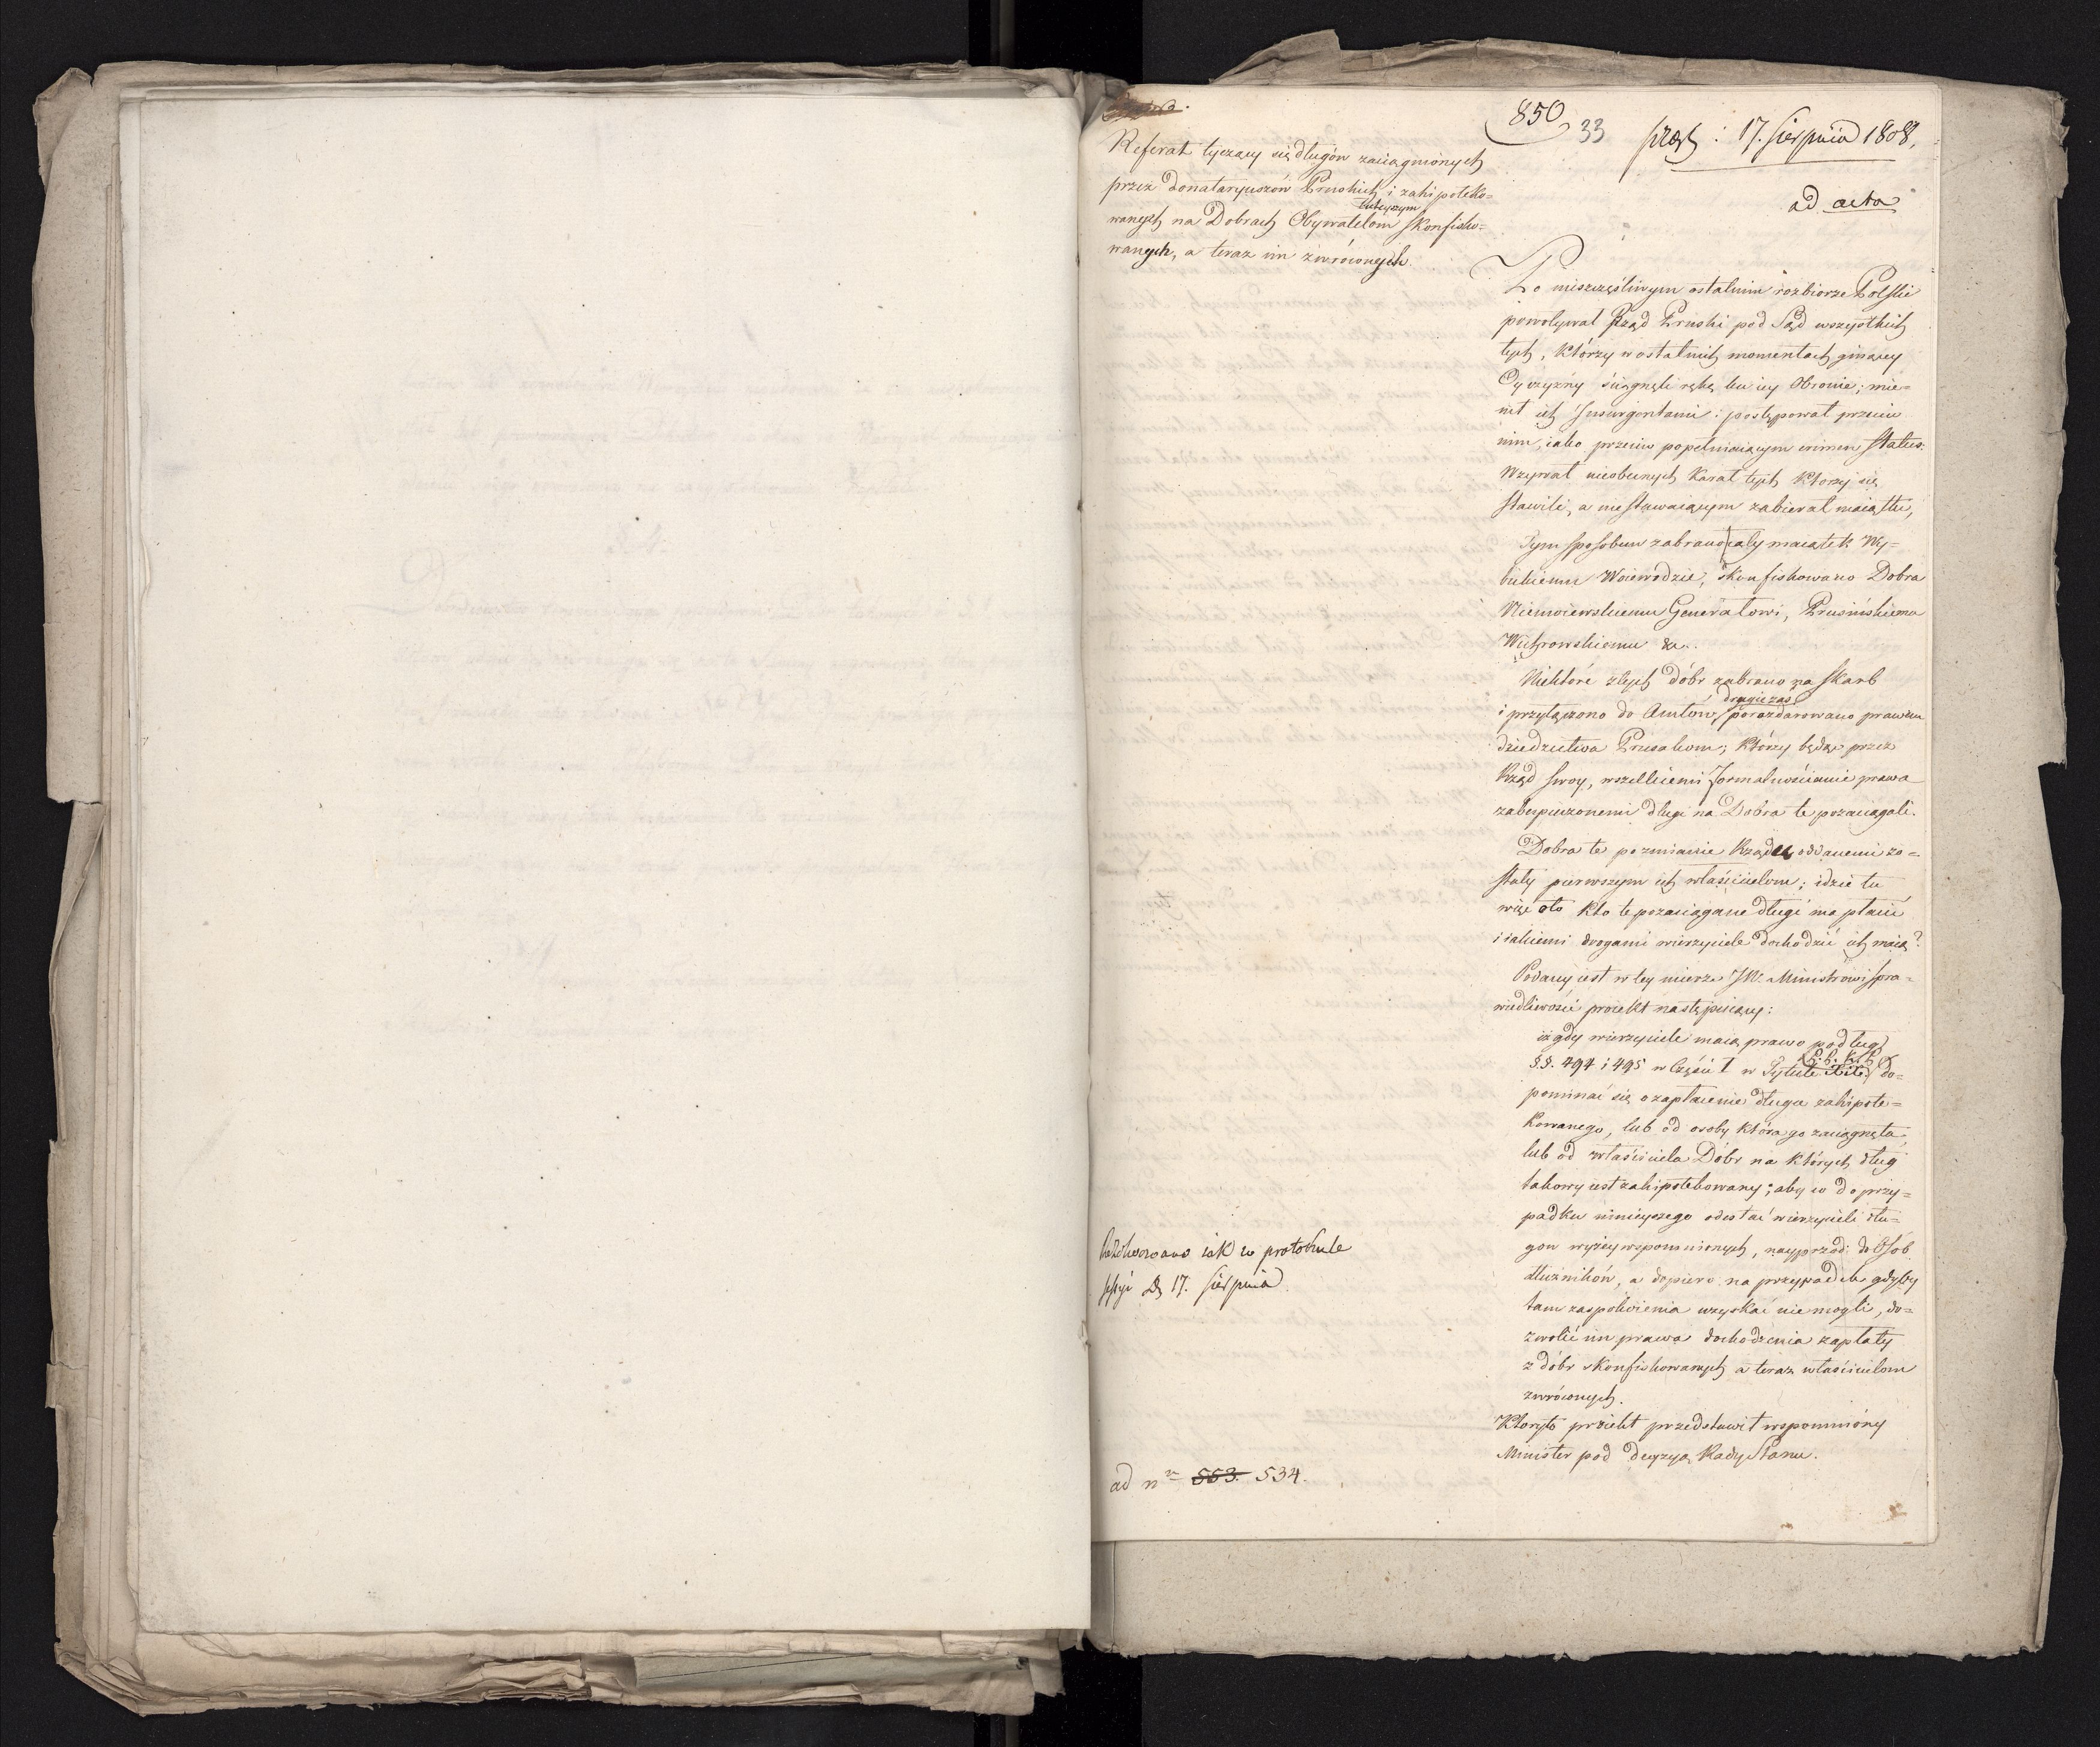 850
33
præs: 17. Sierpnia 1808.
ad acta
Referat tyczący się długów zaciągnionych
przez Donataryuszów Pruskich i zahipoteko=
wanych na Dobrach Obywatelom tuteyszym skonfisko=
wanych, a teraz im zwróconych.
Po nieszczęśliwym ostatnim rozbiorze Polski
powoływał Rząd Pruski pod Sąd wszystkich
tych, którzy w ostatnich momentach ginącey
Oyczyzny ściągnęli rękę ku iey Obronie; mie=
nił ich Insurgentami: postępował przeciw
nim, iako przeciw popełniaiącym crimen status:
Wzywał nieobecnych karał tych którzy się
stawili, a niestawaiącym zabierał maiątki,
Tym sposobem zabrano cały maiątek Wy=
bickiemu Woiewodzie, skonfiskowano Dobra
Niemoiewskiemu Generałowi, Prusimskiemu
Wichrowskiemu &c..
Niektóre z tych dóbr zabrano na Skarb
i przyłączono do Amtów, drugie zaś porozdarowano prawem
dziedzictwa Prusakom; którzy będąc przez
Rząd swoy, wszelkiemi formalnościami prawa
zabezpieczonemi długi na Dobra te pozaciągali.
Dobra te po zmianie Rządu oddanemi zo=
stały pierwszym ich właścicielom; idzie tu
więc o to kto te pozaciągane długi ma płacić
i iakiemi drogami wierzyciele dochodzić ich maią?
Podany iest w tey mierze JW. Ministrowi Spra=
wiedliwości proiekt następuiący:
iż gdy wierzyciele maią prawo podług
§.§. 494 i 495 w Części I w Tytule do=
pominać się o zapłacenie długu zahipote=
kowanego, lub od osoby która go zaciągnęła,
lub od właściciela Dóbr na których dług
takowy iest zahipotekowany; aby co do przy=
padku ninieyszego odesłać wierzycieli dłu=
gów wyżey wspomnionych, nayprzód: do Osób
dłużników, a dopiero na przypadek gdyby
tam zaspokoienia uzyskać nie mogli, do=
zwolić im prawa dochodzenia zapłaty
z dóbr skonfiskowanych a teraz właścicielom
zwróconych.
Któryto proiekt przedstawił wspomniony
Minister pod decyzyą Rady Stanu.
iak w protokule
sessyi D. 17. Sierpnia
ad nr 553. 534.